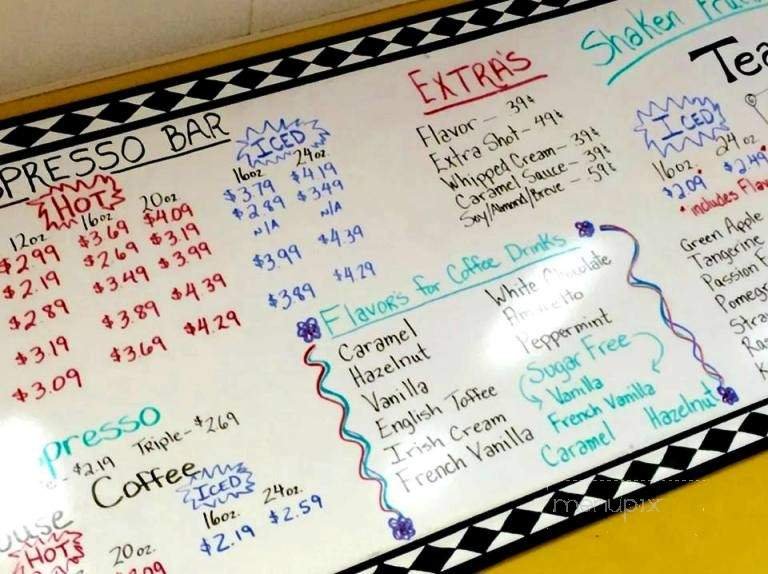 PRESSO BAR
HOT
ICED
12oz. 16oz 20oz. 16oz 24oz.
$2.99 $3.69 $4.09 $3.79 $4.19
$2.19 $2.69 $3.19 $2.89 $3.49
$2.89 $3.49 $3.99 N/A N/A
$3.19 $3.89 $4.39 $3.99 $4.39
$3.09 $3.69 $4.29 $3.89 $4.29
presso
$2.19 Triple- $2.69
Coffee
ouse
HOT
ICED
20oz. 16oz. 24oz.
$2.19 $2.59
EXTRA'S
Flavor - 39¢
Extra Shot - 49¢
Whipped Cream - 39¢
Caramel Sauce - 39¢
Soy/Almond/Breve - 59¢
Flavors for Coffee Drinks
Caramel
Hazelnut
Vanilla
English Toffee
Irish Cream
French Vanilla
White Chocolate
Amaretto
Peppermint
Sugar Free
Vanilla
French Vanilla
Caramel Hazelnut
Shaken
Tea
ICED
16oz. 24oz
$2.09 $2.49
*includes
Green Apple
Tangerine
Passion
menupix